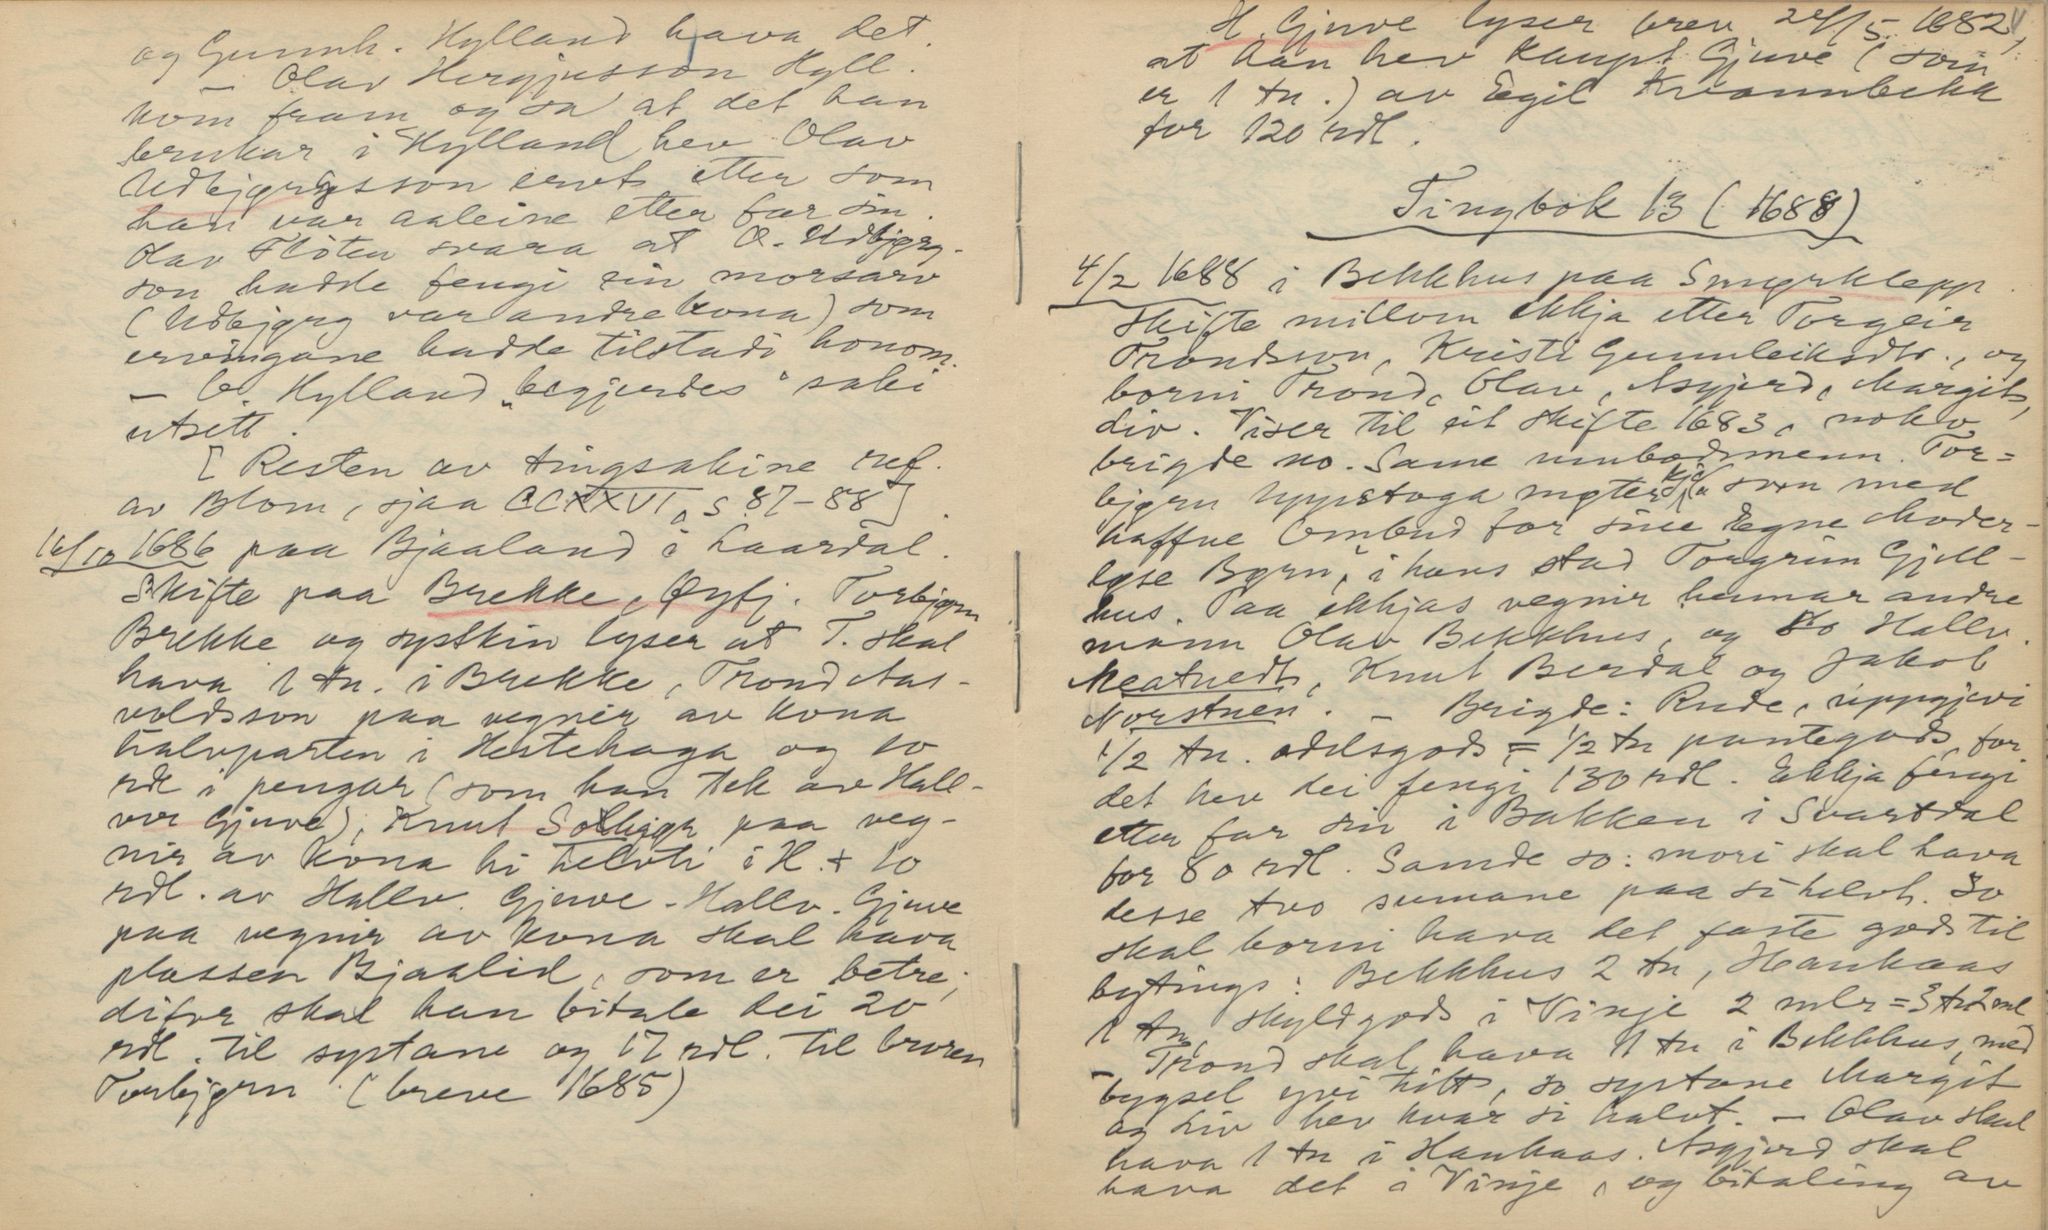 og Gunnh. Hylland hava det.
— Olav Hergjusson Hyll.
kom fram og sa at det han
brukar i Hylland hev Olav
Udbjørgsson ervt etter som
han var aaleine etter far sin.
Olav Flöten svara at O. Udbjørg-
son hadde fengi sin morsarv
(Udbjørg var andrekona) som
ervingane hadde tilstadi honom.
— O. Hylland „begjerdes" saki
utsett.
[Resten av tingsakine ref.
av Blom, sjaa CCXXVI, s. 87-88].
16/10 1686 paa Bjaaland i Laardal.
Skifte paa Brekke, Øyfj. Torbjørn
Brekke og syskin lyser at T. skal
hava 1 tn. i Brekke, Trond Aas-
voldsson paa vegnir av kona
halvparten i Hestehaga og 10
rdl i pengar (som han tek av Hall-
vor Gjuve), Knut paa veg-
nir av kona hi helvti i H. + 10
rdl. av Hallv. Gjuve. Hallv. Gjuve
paa vegnir av kona skal hava
plassen Bjaalid, som er betre;
difor skal han bitala dei 20
rdl. til systane og 17 rdl. til broren
Torbjørn. (breve 1685)
H. Gjuve lyser brev 24/5 1682,
at han hev kaupt Gjuve (som
er 1 tn.) av Egil Kvannbekk
for 120 rdl.
Tingbok 13 (1688)
4/2 1688 i Bekkhus paa Smørklepp.
Skifte millom ekkja etter Torgeir
Trondsson, Kristi Gunnleiksdtr., og
borni Trond, Olav, Asgjerd, Margit,
Liv. Viser til eit skifte 1683, nokv
brigde no. Same umbodsmenn. Tor=
bjørn Uppistoga møter ikkje som med
haffue Ombud for sine Egne Moder-
løse Børn, i hans stad Torgrim Gjell-
hus. Paa ekkjas vegnir hennar andre
mann Olav Bekkhus, og so Hallv.
Meatuedt, Knut Berdal og Jakob
Norstuen. — Brigde: Rude, uppgjevi
1/2 tn. odelsgods = 1/2 tn pantegods, for
det hev dei fengi 130 rdl. Ekkja fengi
etter far sin i Bakken i Svartdal
for 80 rdl. Samde so: mori skal hava
desse two sumane paa si helvt. So
skal borni hava det faste gods til
bytings: Bekkhus 2 tn, Haukaas
1 tn, skyldgods i Vinje 2 mlr = 3 tn 2 ml
— Trond skal hava 1 tn i Bekkhus, med
bygsel yvi hitt, so systane Margit
og Liv hev kvar si halvt. — Olav skal
hava 1 tn i Haukaas. Asgjerd skal
hava det i Vinje, og bitaling av